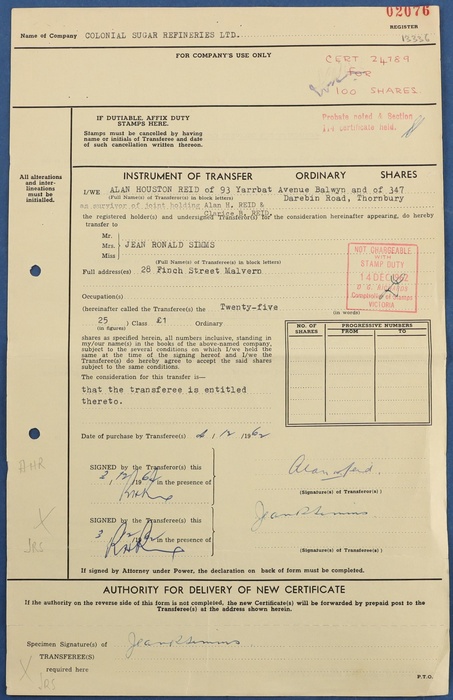 02076
REGISTER
13356
Name of Company COLONIAL SUGAR REFINERIES LTD.
FOR COMPANY'S USE ONLY
CERT 24189
FOR
100 SHARES.
IF DUTIABLE, AFFIX DUTY
STAMPS HERE.
Stamps must be cancelled by having
name or initials of Transferee and date
of such cancellation written thereon.
Probate noted & Section
certificate held.
All alterations
and inter-
lineations
must be
initialed.
INSTRUMENT OF TRANSFER ORDINARY SHARES
I/WE ALAN HOUSTON REID of 93 Yarrbat Avenue Balwyn and of 347
(Full Name(s) of Transferor(s) in block letters) Darebin Road, Thornbury
as survivor of joint holding Alan H. REID &
Clarice B. REID,
the registered holder(s) and undersigned Transferor(s) for the consideration hereinafter appearing, do hereby
transfer to
Mr.
Mrs. JEAN RONALD SIMMS
Miss
(Full Name(s) of Transferee(s) in block letters)
Full address(es) 28 Finch Street Malvern
NOT CHARGEABLE
WITH
STAMP DUTY
14 DEC 1962
Comptroller of Stamps
VICTORIA
Occupation(s)
(hereinafter called the Transferee(s) the Twenty-five
(in words)
25 ) Class £1 Ordinary
(in figures)
shares as specified herein, all numbers inclusive, standing in
my/our name(s) in the books of the above-named company,
subject to the several conditions on which I/we held the
same at the time of the signing hereof and I/we the
Transferee(s) do hereby agree to accept the said shares
subject to the same conditions.
NO. OF SHARES
PROGRESSIVE NUMBERS
FROM TO
The consideration for this transfer is—
that the transferee is entitled
thereto.
Date of purchase by Transferee(s) / 12 / 1962
AHR
SIGNED by the Transferor(s) this
3 / 12 / 1962 in the presence of
(Signature(s) of Transferor(s) )
X
JRS
Jean R Simms
SIGNED by the Transferee(s) this
3 / 12 / 1962 in the presence of
(Signature(s) of Transferee(s) )
If signed by Attorney under Power, the declaration on back of form must be completed.
AUTHORITY FOR DELIVERY OF NEW CERTIFICATE
If the authority on the reverse side of this form is not completed, the new Certificate(s) will be forwarded by prepaid post to the
Transferee(s) at the address shown herein.
Specimen Signature(s) of Jean R Simms
TRANSFEREE(S)
required here
X JRS
P.T.O.